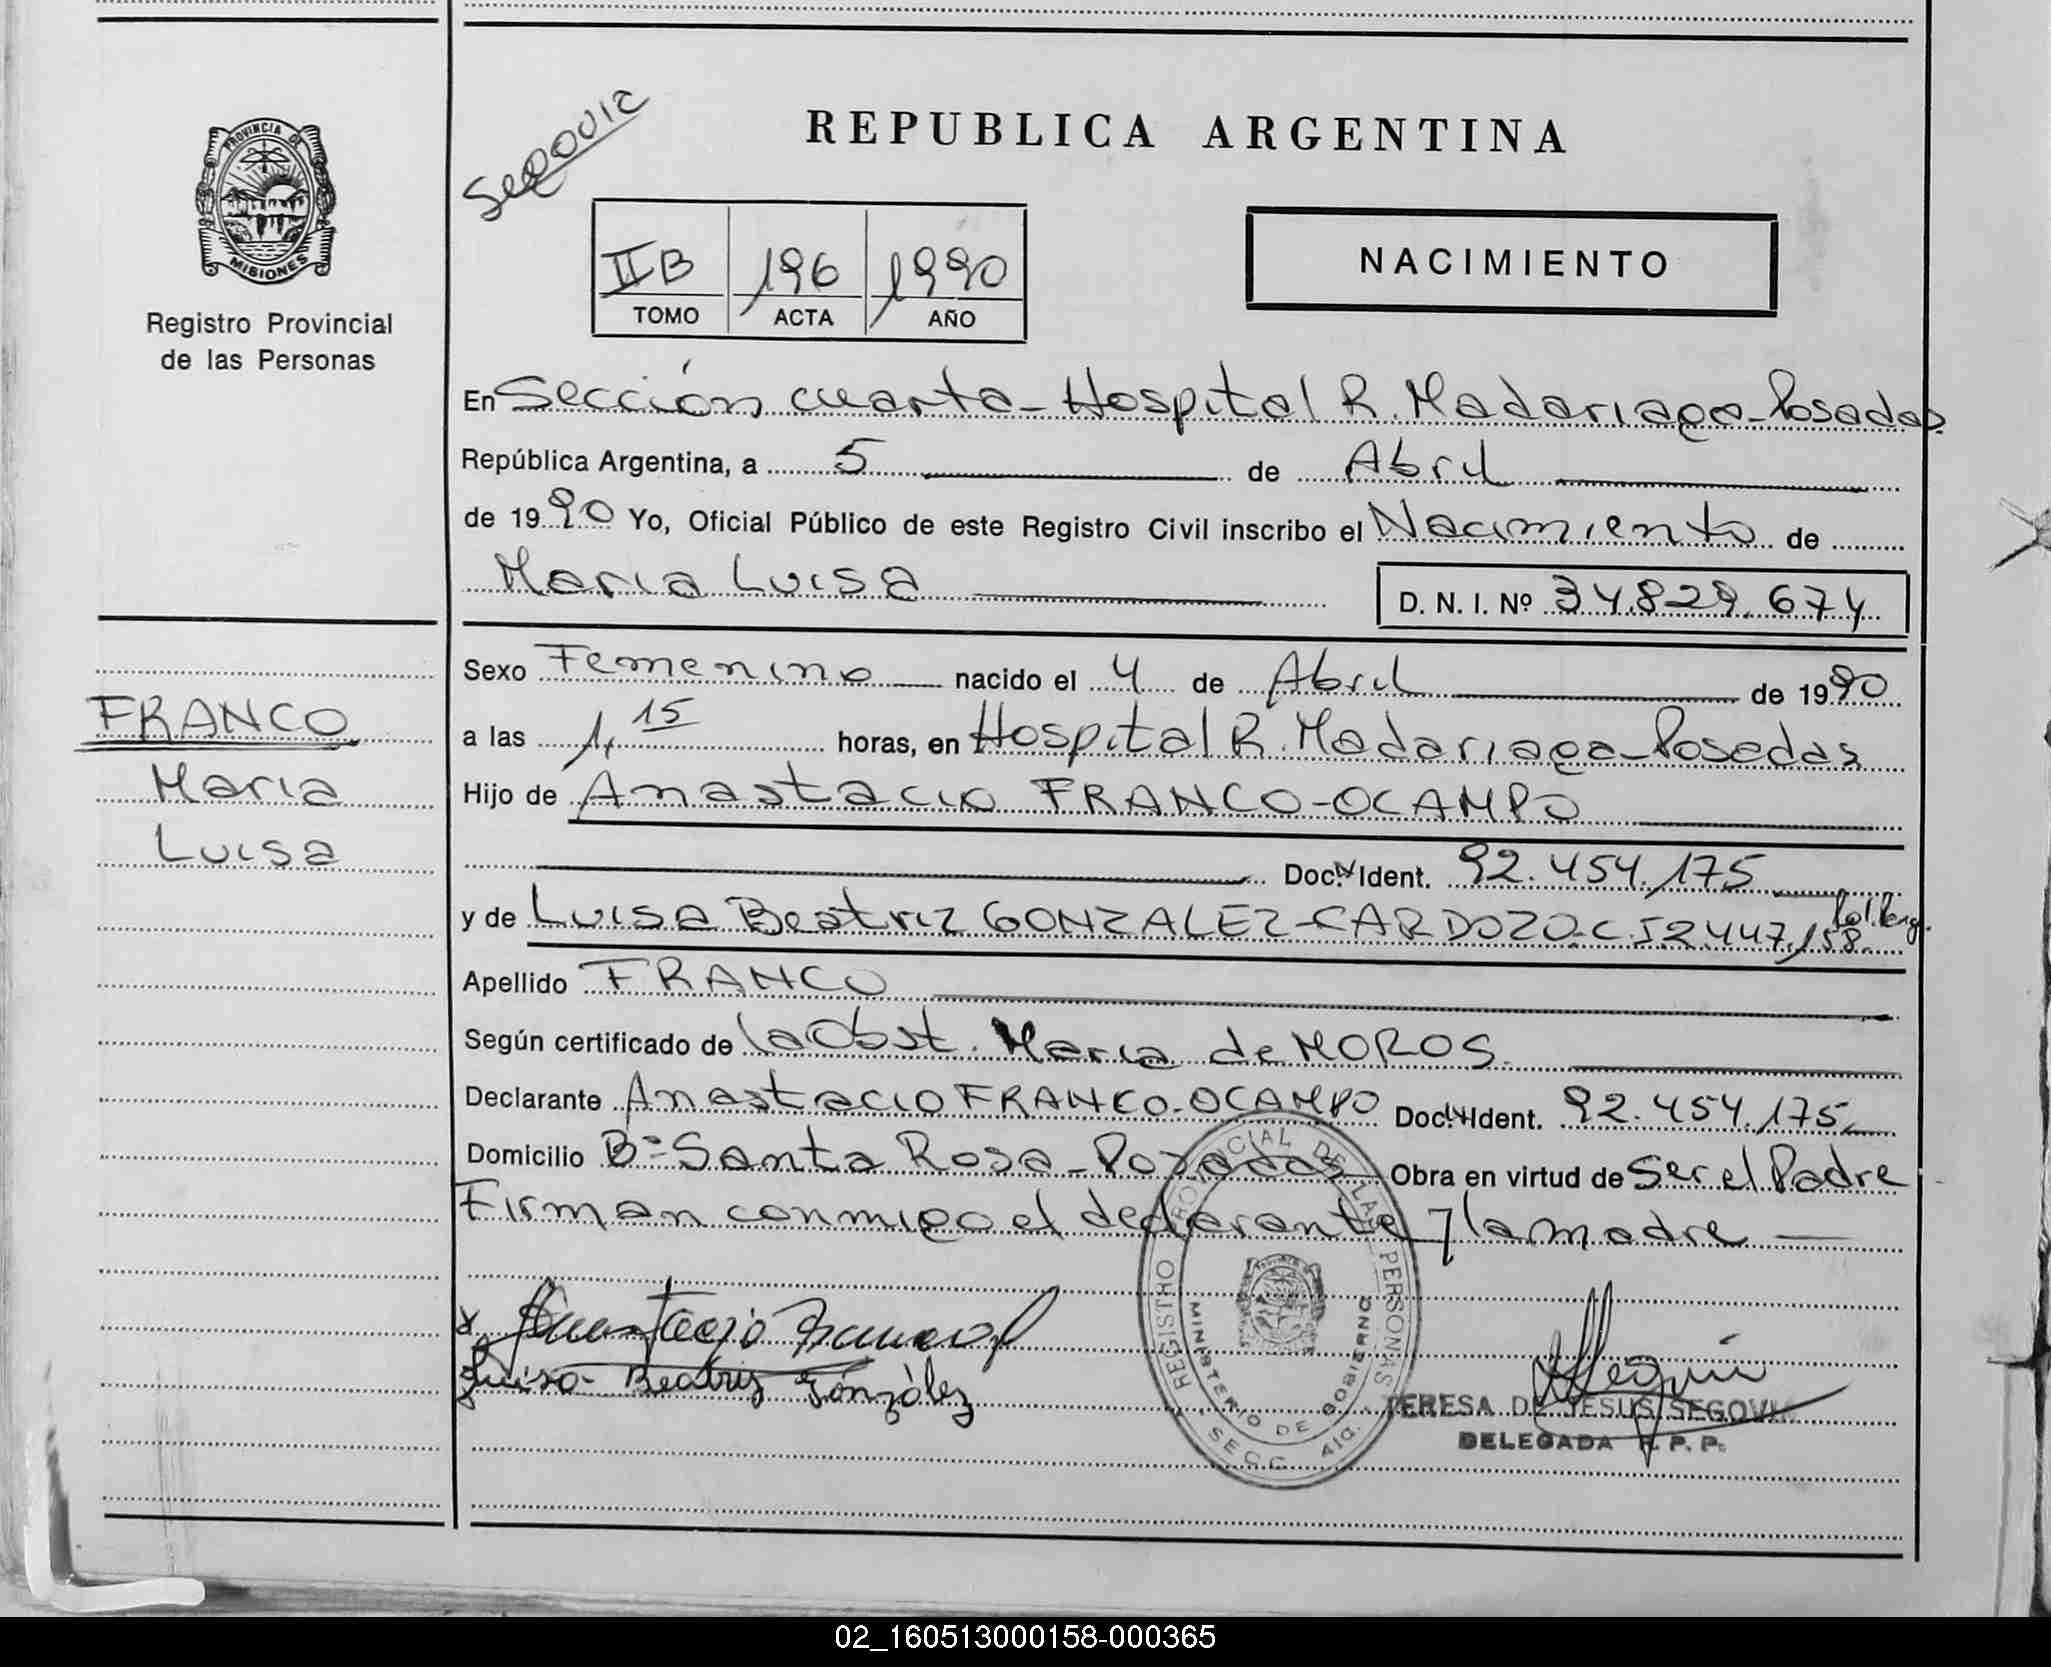 Segovia
REPUBLICA ARGENTINA
PROVINCIA DE
MISIONES
Registro Provincial
de las Personas
II B 196 1990
TOMO ACTA AÑO
NACIMIENTO
En Sección cuarta - Hospital R. Madariaga - Posadas
República Argentina, a 5 de Abril
de 1990 Yo, Oficial Público de este Registro Civil inscribo el Nacimiento de
Maria Luisa D. N. I. Nº 34.829.674
Sexo Femenino nacido el 4 de Abril de 1990
a las 1,15 horas, en Hospital R. Madariaga - Posadas
Hijo de Anastacio FRANCO-OCAMPO
Doc. Ident. 92.454.175
y de Luisa Beatriz GONZALEZ-CARDOZO-C.I 2.447.158
Apellido FRANCO
Según certificado de la Obst. Maria de MOROS.
Declarante Anastacio FRANCO-OCAMPO Doc. Ident. 92.454.175
Domicilio Bº Santa Rosa - Posadas Obra en virtud de Ser el Padre
Firman conmigo el declarante y la madre
FRANCO
Maria
Luisa
Anastacio Franco
Luisa Beatriz González
REGISTRO PROVINCIAL DE LAS PERSONAS
MINISTERIO DE GOBIERNO
SECC. 4ta.
TERESA DE JESUS SEGOVIA
DELEGADA R. P. P.
02_160513000158-000365